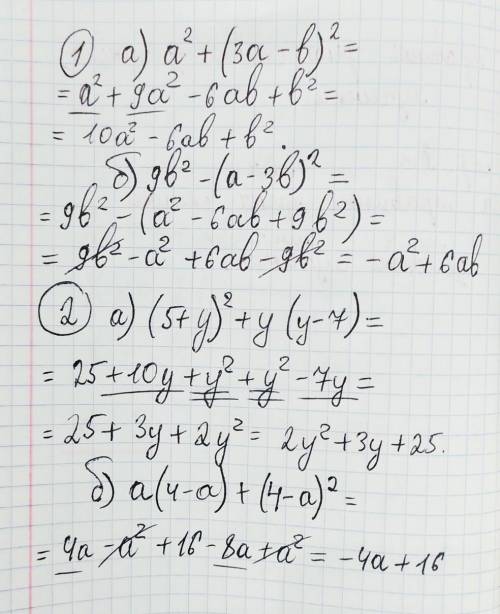 1 а) a² + (3a - b)² =
= a² + 9a² - 6ab + b² =
= 10a² - 6ab + b².
б) 9b² - (a - 3b)² =
= 9b² - (a² - 6ab + 9b²) =
= 9b² - a² + 6ab - 9b² = -a² + 6ab
2 а) (5+y)² + y (y-7) =
= 25 + 10y + y² + y² - 7y =
= 25 + 3y + 2y² = 2y² + 3y + 25.
б) a(4-a) + (4-a)² =
= 4a - a² + 16 - 8a + a² = -4a + 16